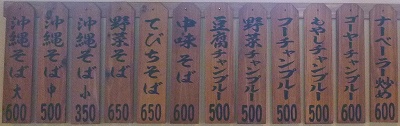 沖縄そば大 600
沖縄そば中 500
沖縄そば小 350
野菜そば 650
てびちそば 650
中味そば 600
豆腐チャンプルー 500
野菜チャンプルー 500
フーチャンプルー 500
もやしチャンプルー 500
ゴーヤーチャンプルー 600
ナーベーラー炒め 600